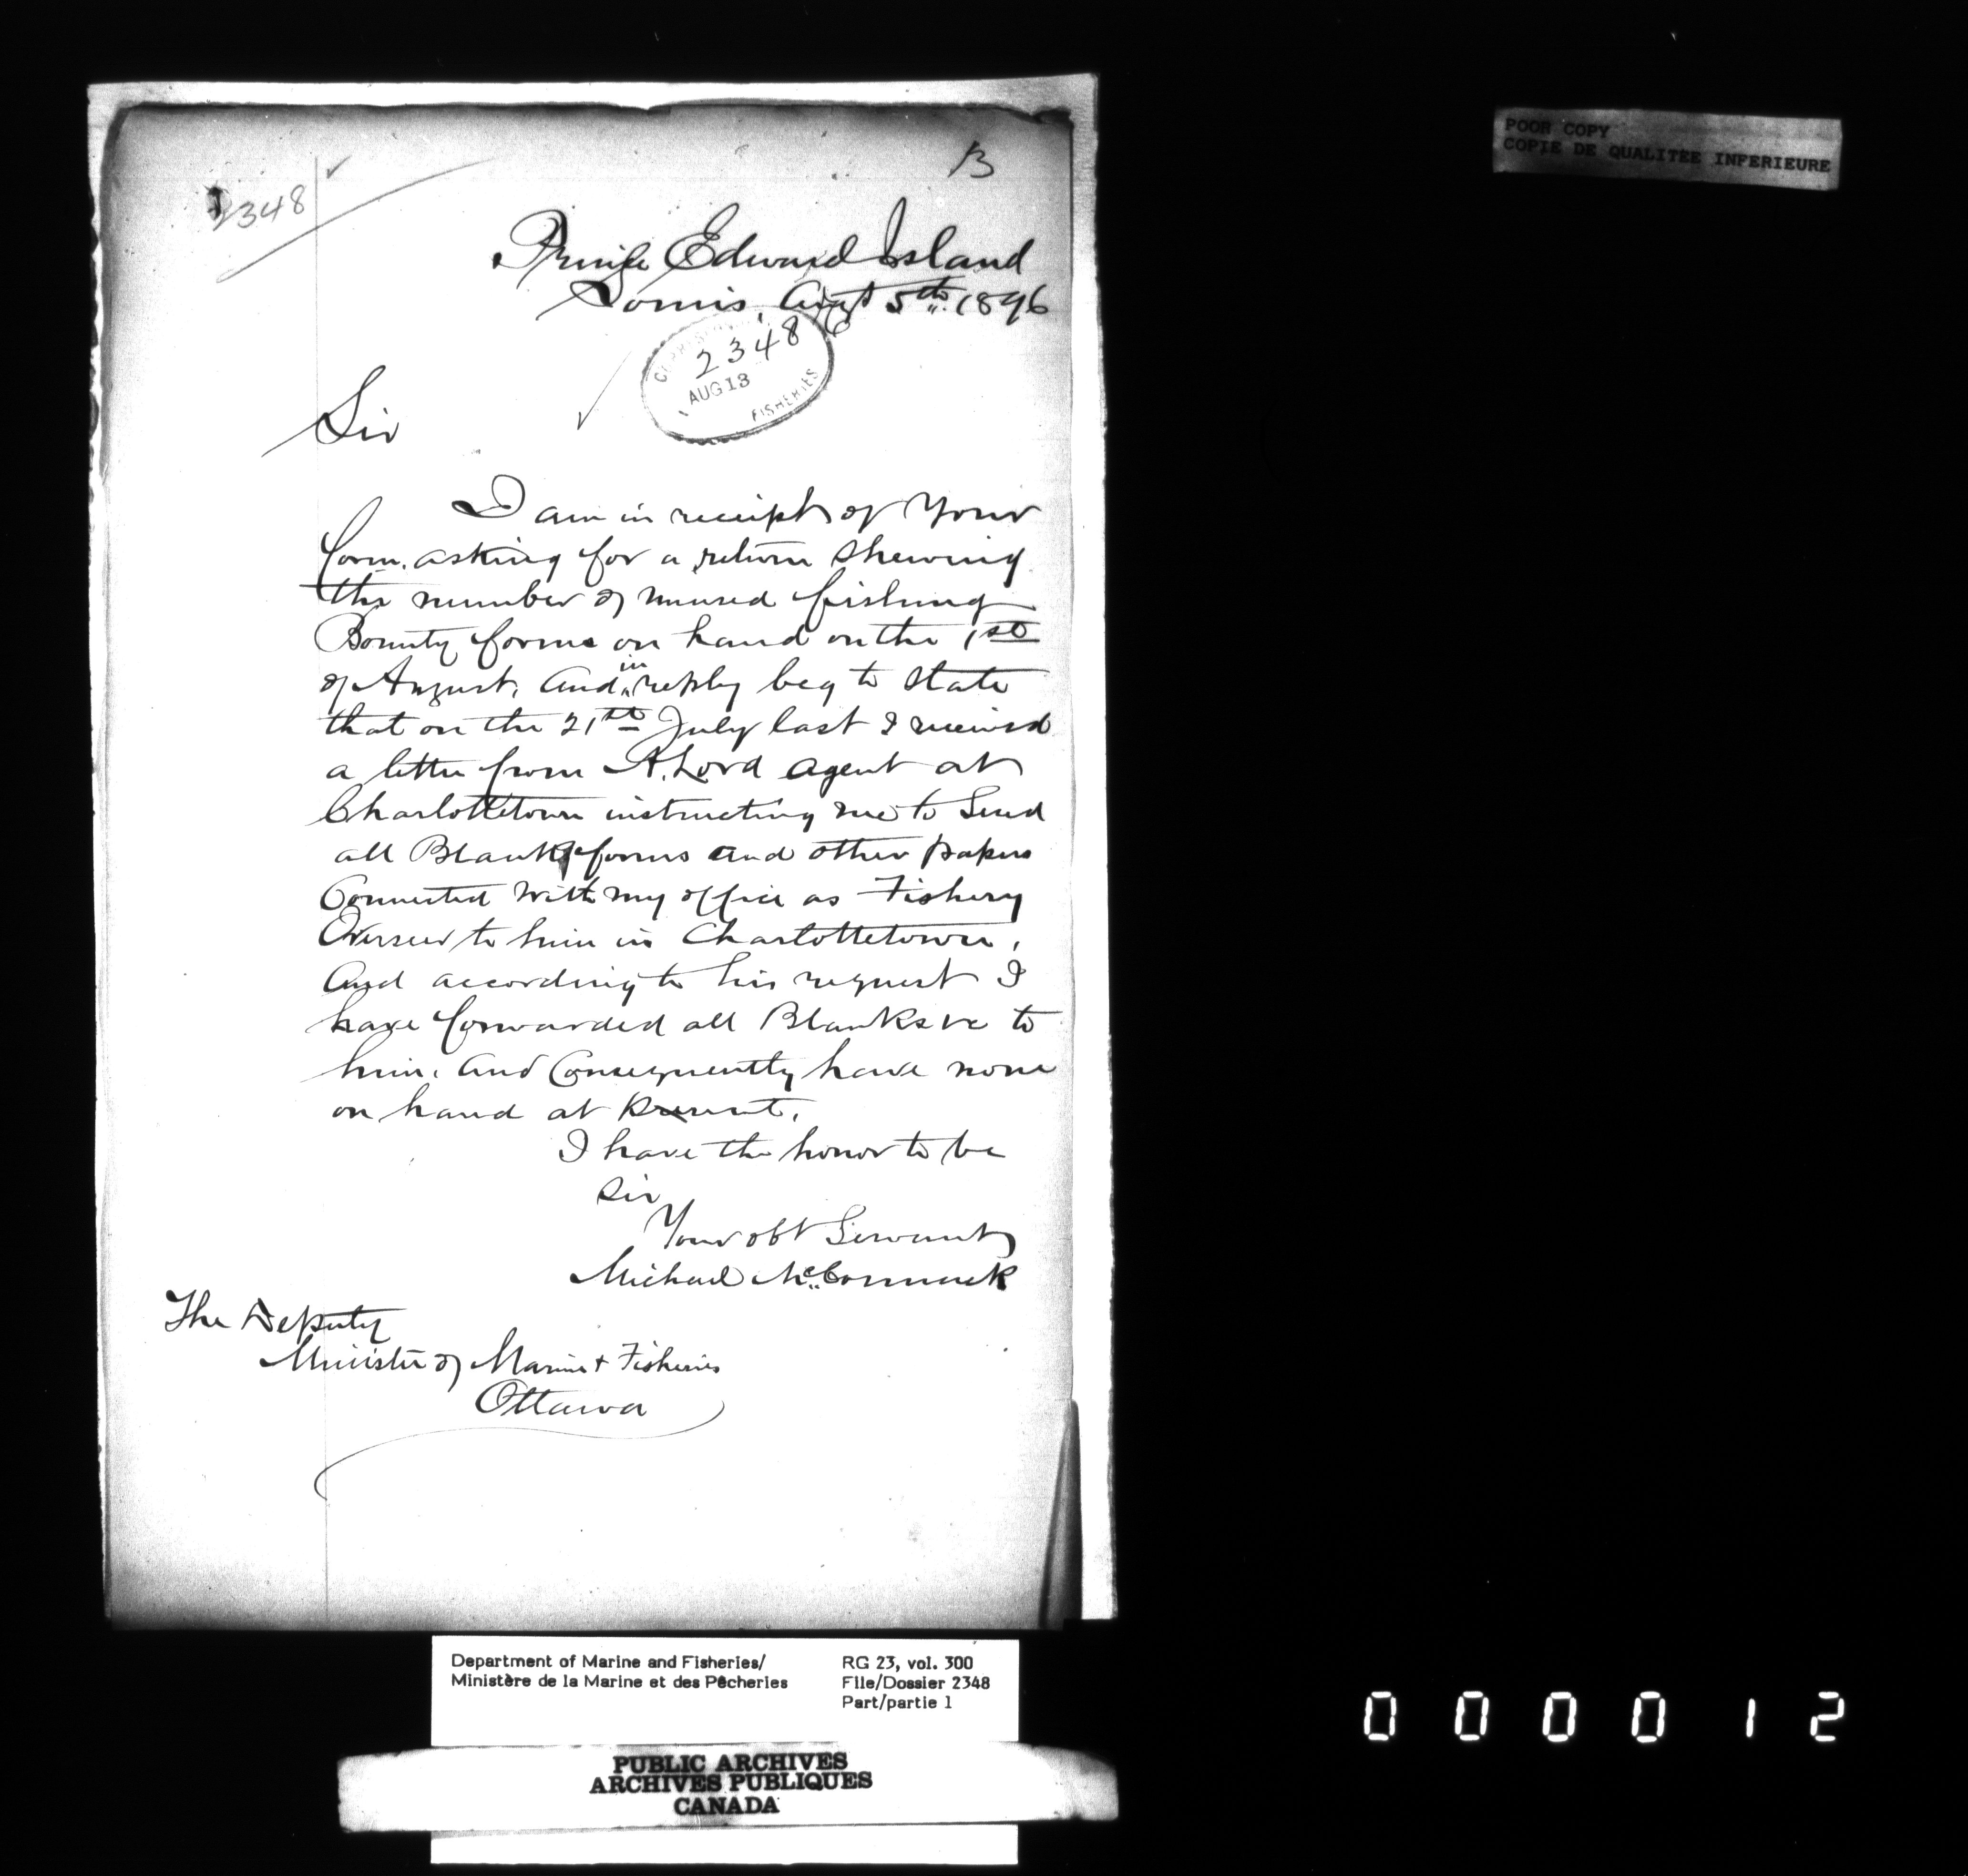 POOR COPY
COPIE DE QUALITEE INFERIEURE
2348
B
Prince Edward Island
Souris, Augt 5th 1896
2348
AUG 13
FISHERIES
Sir
I am in receipt of Your
form. asking for a return shewing
the number of unused fishing
Bounty forms on hand on the 1st
of August, and in reply beg to state
that on the 21st July last I received
a letter from A. Lord agent at
Charlottetown instructing me to Send
all Blank forms and other papers
Connected with my office as Fishery
Overseer to him in Charlottetown,
And according to his request I
have forwarded all Blanks &c to
him, and Consequently have none
on hand at present.
I have the honor to be
Sir
Your obt Servant
Michael McCormack
The Deputy
Minister of Marine & Fisheries
Ottawa
Department of Marine and Fisheries/
Ministère de la Marine et des Pêcheries
RG 23, vol. 300
File/Dossier 2348
Part/partie 1
PUBLIC ARCHIVES
ARCHIVES PUBLIQUES
CANADA
000012